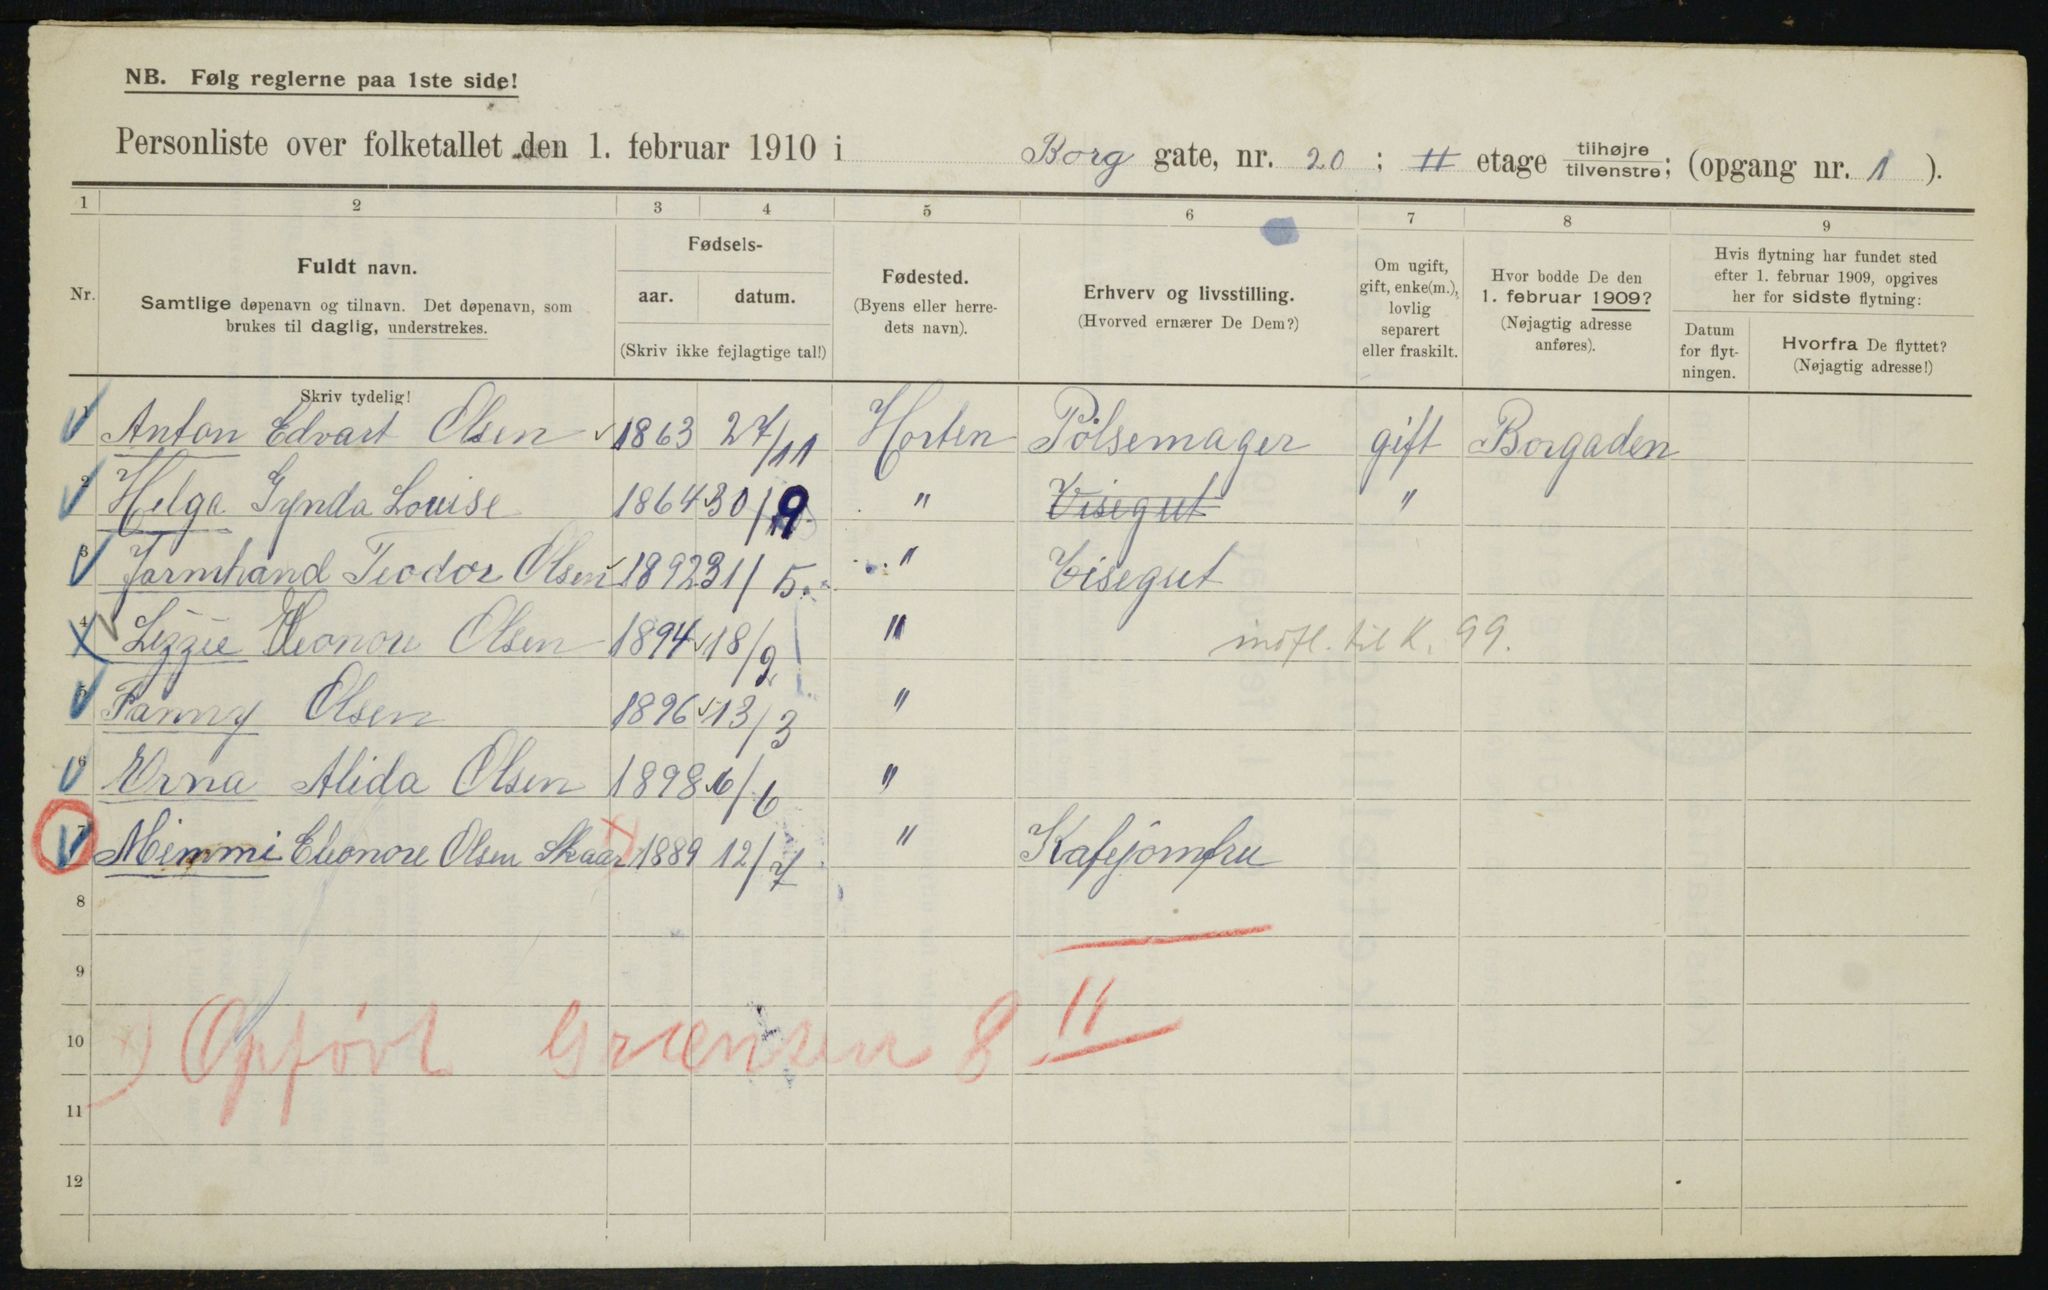 NB. Følg reglerne paa 1ste side!
Personliste over folketallet den 1. februar 1910 i Borg gate, nr. 20 ; II etage tilhøjre/tilvenstre; (opgang nr. 1 ).
1 2 3 4 5 6 7 8 9
Nr.
Fuldt navn.
Samtlige døpenavn og tilnavn. Det døpenavn, som
brukes til daglig, understrekes.
Skriv tydelig!
Fødsels-
aar. datum.
(Skriv ikke fejlagtige tal!)
Fødested.
(Byens eller herre-
dets navn).
Erhverv og livsstilling.
(Hvorved ernærer De Dem?)
Om ugift,
gift, enke(m.),
lovlig
separert
eller fraskilt.
Hvor bodde De den
1. februar 1909?
(Nøjagtig adresse
anføres).
Hvis flytning har fundet sted
efter 1. februar 1909, opgives
her for sidste flytning:
Datum
for flyt-
ningen.
Hvorfra De flyttet?
(Nøjagtig adresse!)
1 Anton Edvart Olsen 1863 27/11 Horten Pölsemager gift Borgaden
2 Helga Gynda Louise 1864 30/9 " Visegut "
3 Jarmhand Teodor Olsen 1892 31/5. " Visegut
4 Lizzie Eleonore Olsen 1894 18/2 " indfl. til K. 99.
5 Fanny Olsen 1896 13/3 "
6 Erna Alida Olsen 1898 6/6 "
7 Mimmi Eleonore Olsen Skaar x) 1889 12/7 " Kafejomfru
8
9
10 x) Opført Grænsen 8 II
11
12